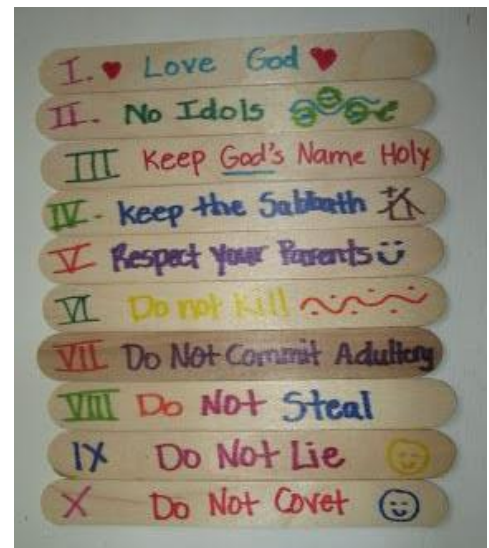 I. Love God
II. No Idols
III Keep God's Name Holy
IV. Keep the Sabbath
V Respect your Parents
VI Do not kill
VII Do Not Commit Adultery
VIII Do Not Steal
IX Do Not Lie
X Do Not Covet